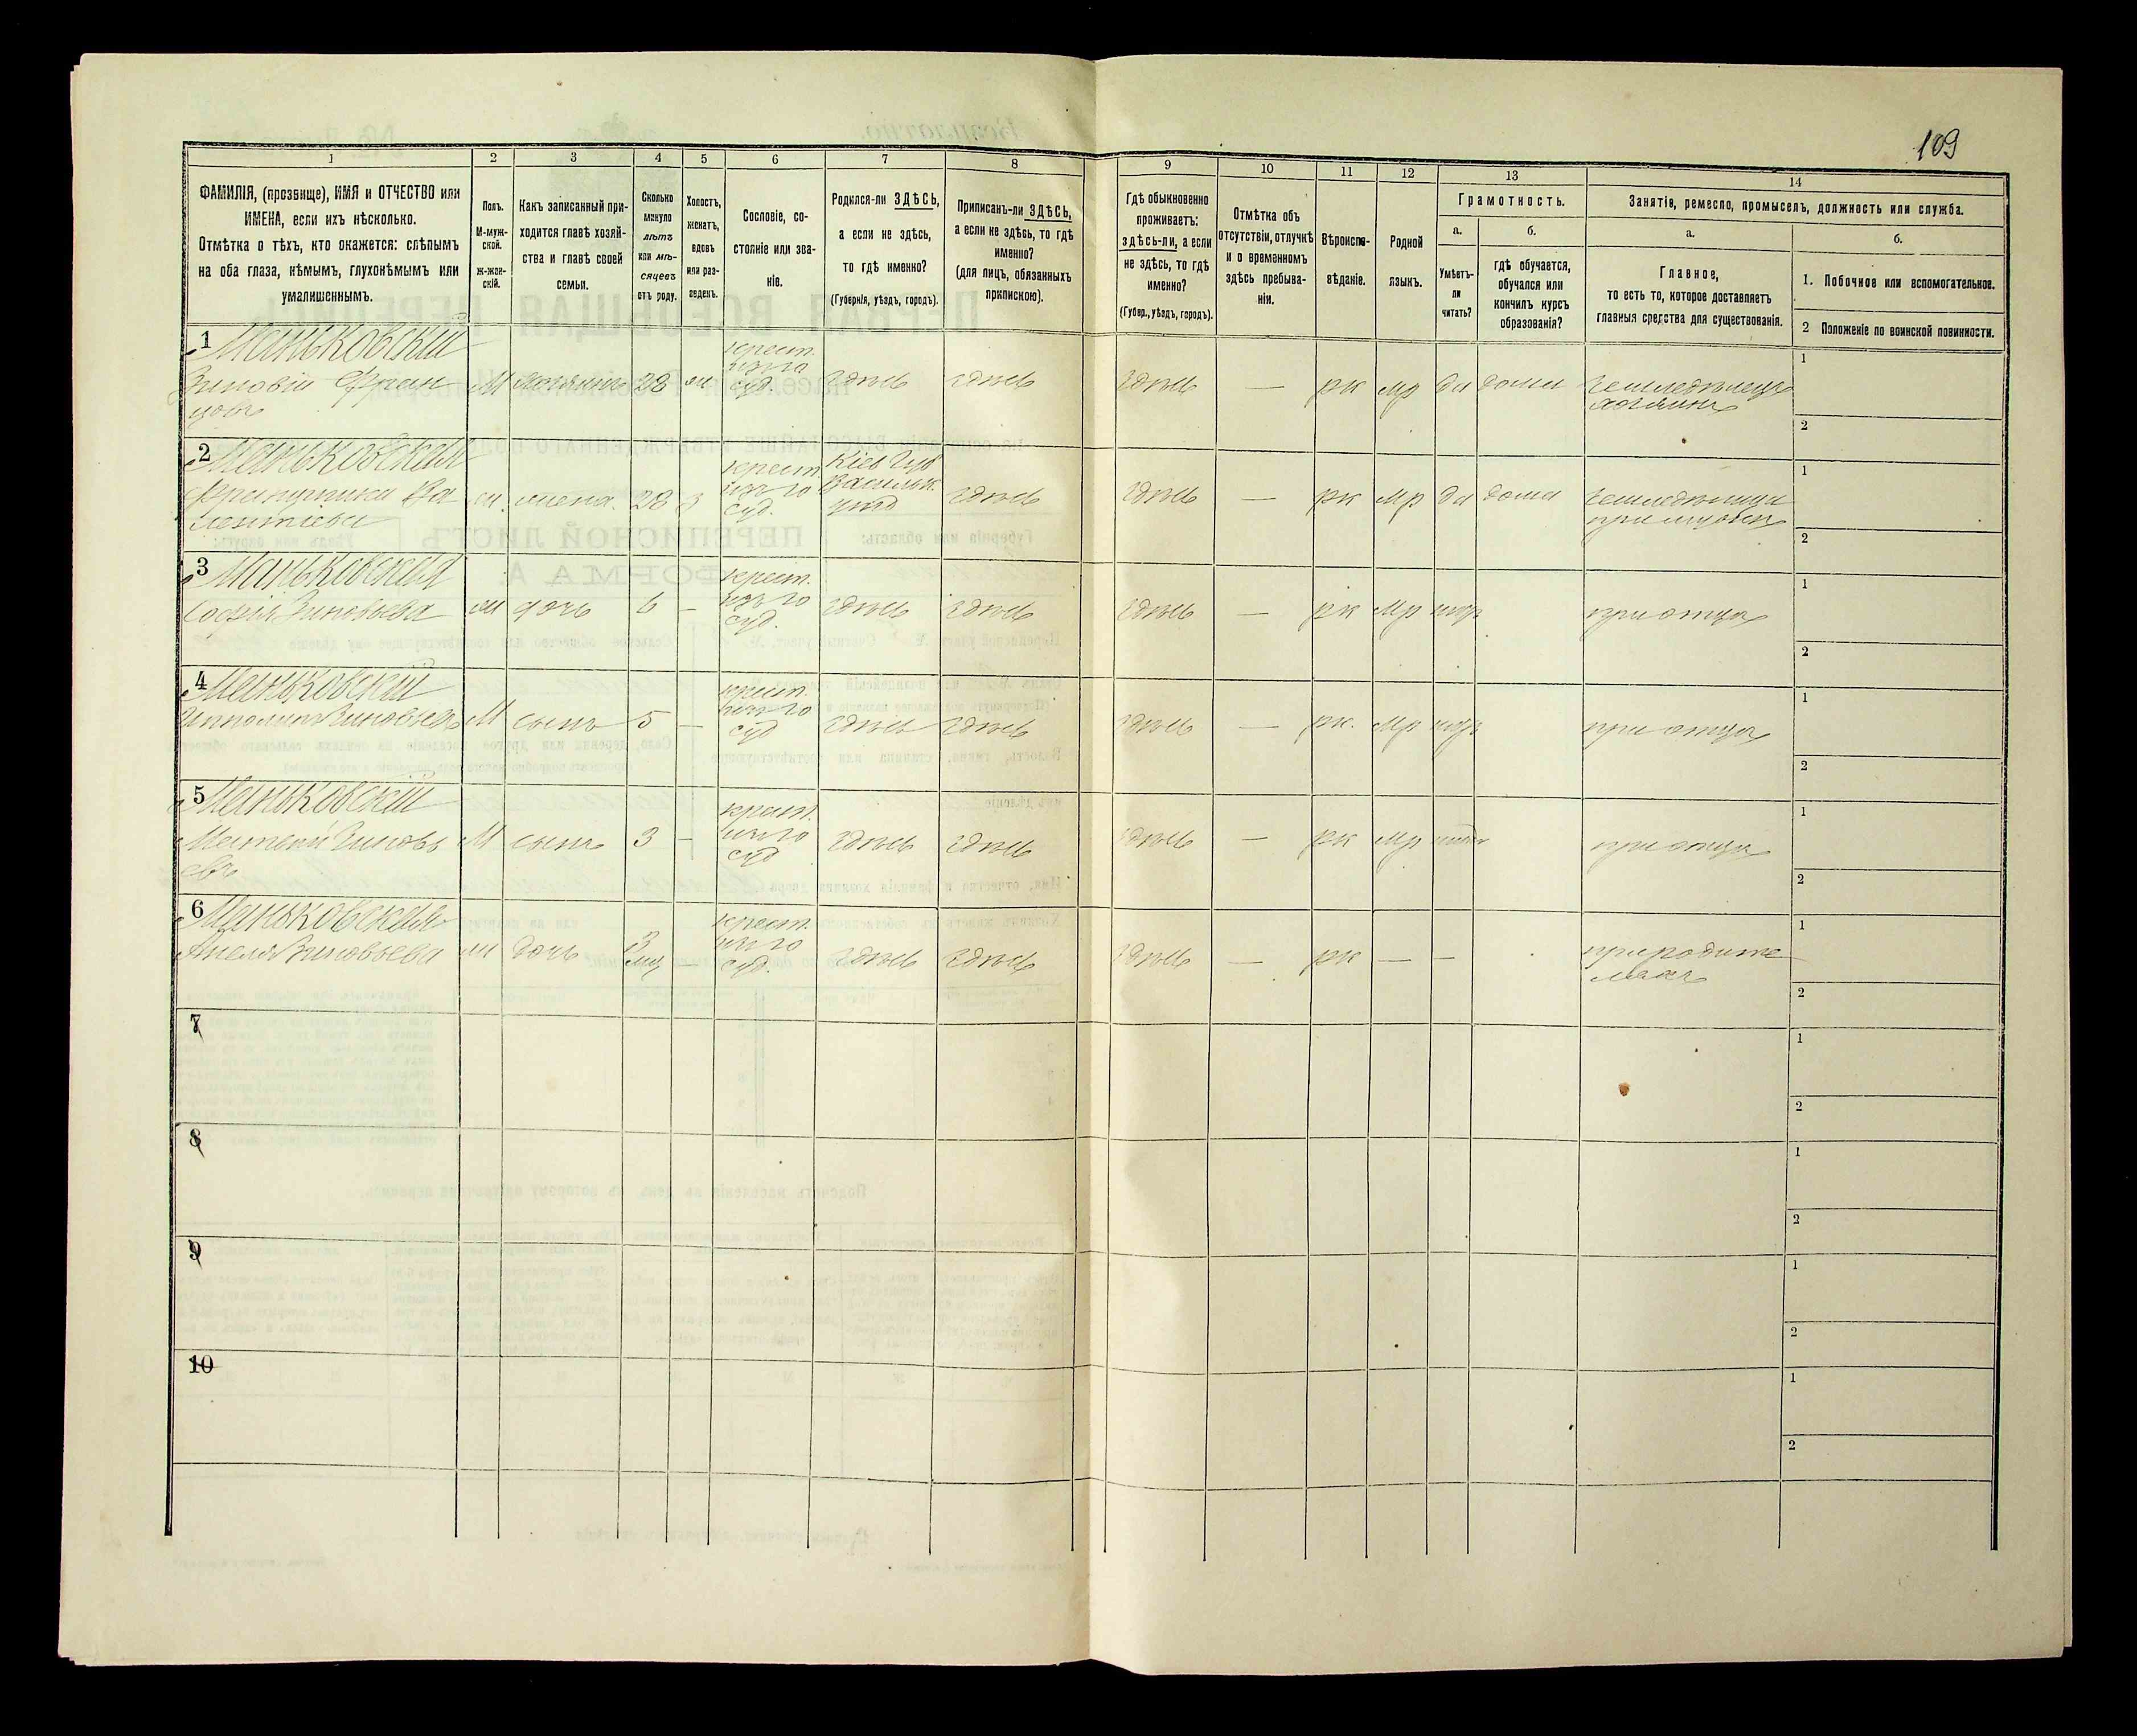 109
1 2 3 4 5 6 7 8 9 10 11 12 13 14
ФАМИЛІЯ, (прозвище), ИМЯ и ОТЧЕСТВО или
ИМЕНА, если ихъ нѣсколько.
Отмѣтка о тѣхъ, кто окажется: слѣпымъ
на оба глаза, нѣмымъ, глухонѣмымъ или
умалишеннымъ.
Полъ.
М-муж-
ской.
ж-жен-
скій.
Какъ записанный при-
ходится главѣ хозяй-
ства и главѣ своей
семьи.
Сколько
минуло
лѣтъ
или мѣ-
сяцевъ
отъ роду.
Холостъ,
женатъ,
вдовъ
или раз-
веденъ.
Сословіе, со-
стояніе или зва-
ніе.
Родился-ли ЗДѢСЬ,
а если не здѣсь,
то гдѣ именно?
(Губернія, уѣздъ, городъ).
Приписанъ-ли ЗДѢСЬ,
а если не здѣсь, то гдѣ
именно?
(для лицъ, обязанныхъ
припискою).
Гдѣ обыкновенно
проживаетъ:
здѣсь-ли, а если
не здѣсь, то гдѣ
именно?
(Губер., уѣздъ, городъ).
Отмѣтка объ
отсутствіи, отлучкѣ
и о временномъ
здѣсь пребыва-
ніи.
Вѣроиспо-
вѣданіе.
Родной
языкъ.
Грамотность.
а.
Умѣетъ-
ли
читать?
б.
гдѣ обучается,
обучался или
кончилъ курсъ
образованія?
Занятіе, ремесло, промыселъ, должность или служба.
а.
Главное,
то есть то, которое доставляетъ
главныя средства для существованія.
б.
1. Побочное или вспомогательное.
2 Положеніе по воинской повинности.
1 Маньковскій
Зиновій Фран
цовъ
М хозяинъ 28 ж
крест.
изъ го
суд.
здѣсь здѣсь здѣсь — рк мр да дома
земледѣлецъ
хозяинъ
1
2
2 Маньковская
Францишка Ва
лентіева
ж. жена. 28 з
крест
изъ го
суд.
Кіев Губ
Васильк.
уѣзд
здѣсь здѣсь — рк мр да дома
при мужѣ
1
2
3 Маньковская
Софія Зиновьева
ж дочь 6 —
крест.
изъ го
суд.
здѣсь здѣсь здѣсь — рк мр
при отцѣ
1
2
4 Маньковскій
Ипполитъ Зиновьевъ
М сынъ 5 —
крест.
изъ го
суд
здѣсь здѣсь здѣсь — рк. мр
при отцѣ
1
2
5 Маньковскій
Зиновь
евъ
М сынъ 3 —
крест.
изъ го
суд
здѣсь здѣсь здѣсь — рк мр
при отцѣ
1
2
6 Маньковская
Анеля Зиновьева
ж дочь 3
мц —
крест.
изъ го
суд.
здѣсь здѣсь здѣсь — рк — —
при родите
ляхъ
1
2
7
1
2
8
1
2
9
1
2
10
1
2